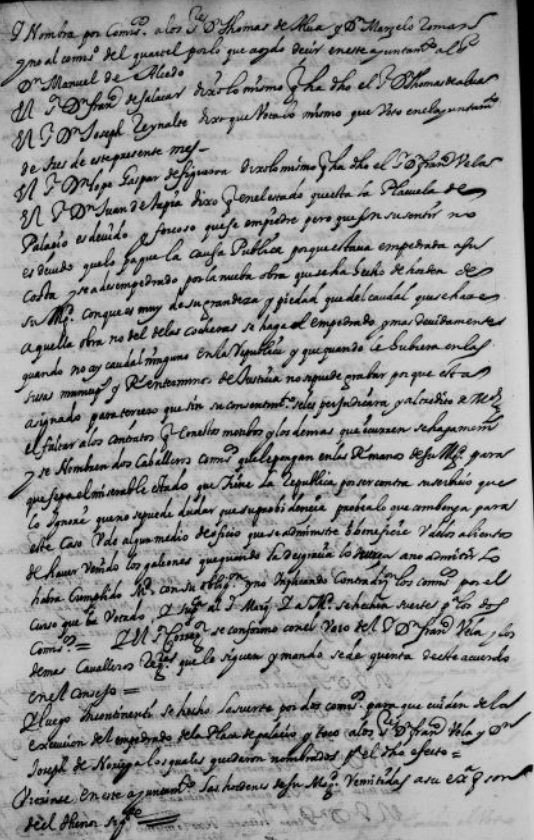 y Nombra por Comiss. a los ss. Dn Thomas de Alua y Dn Marzelo Roman
y no al comiss. del quartel por lo que a oydo decir en este ayuntamto al sr
Dn Manuel de Alcedo
El sr Dn franco de Salazar dixo lo mismo q ha dho el sr Dn Thomas de alua
El sr Dn Joseph Reynalte dixo que Vota lo mismo que Voto en el ayuntamto
de tres de este presente mes
El sr Dn lope Gaspar de figueroa dixo lo mismo q ha dho el sr Dn franco Vela
El sr Dn Juan de tapia dixo q en el estado que esta la Plazuela de
Palacio es deuido y forzoso que se empiedre pero que en su sentir no
es deuido que lo pague la causa Publica porque estaua empedrada a su
costa y se a desempedrado por la nueba obra que se ha hecho de horden de
su Mgd. Con que es muy de su grandeza y piedad que del caudal que se hace
aquella obra no del de las cocheras se haga el empedrado y mas deuidamente
quando no ay caudal ninguno en la Republica y que quando le hubiera en las
sisas y Rentas de Justicia no se puede grabar por que esta
asignado para terceros que sin su consentimto se les perjudicara y al credito de Md
el faltar a los contratos q con estos motibos y los demas que ocurren se haga memorl
y se Nombren dos Caballeros Comiss. que le pongan en las Rs manos de su Mgd. para
que sepa el miserable estado que tiene la Republica por ser contra su seruicio que
lo Ignore que no se puede dudar que su probidencia probea lo que combenga para
este Caso
de hauer Venido los galeones que quando la desgracia lo
habra Cumplido Md. con su oblign y no Implicando Contradicion los comiss. por el
curso que ha Votado, y supca al sr Marq. Da Md. se hechen suertes pr los dos
Comiss. = El sr Corregr se conformo con el Voto del sr Dn franco Vela y los
demas Cavalleros Regres que le siguen y mando se de quenta de este acuerdo
en el Consejo =
Y luego Incontinenti se hecho la suerte por dos comiss. para que cuiden de la
execucion del empedrado de la Plaza de palacio y toco a los ss. Dn franco Vela y Dn
Joseph de Noriega los quales quedaron nombrados pa el dho efecto =
Vieronse en este ayuntamto las hordenes de su Magd. Remitidas a su exa q son
del thenor sigte